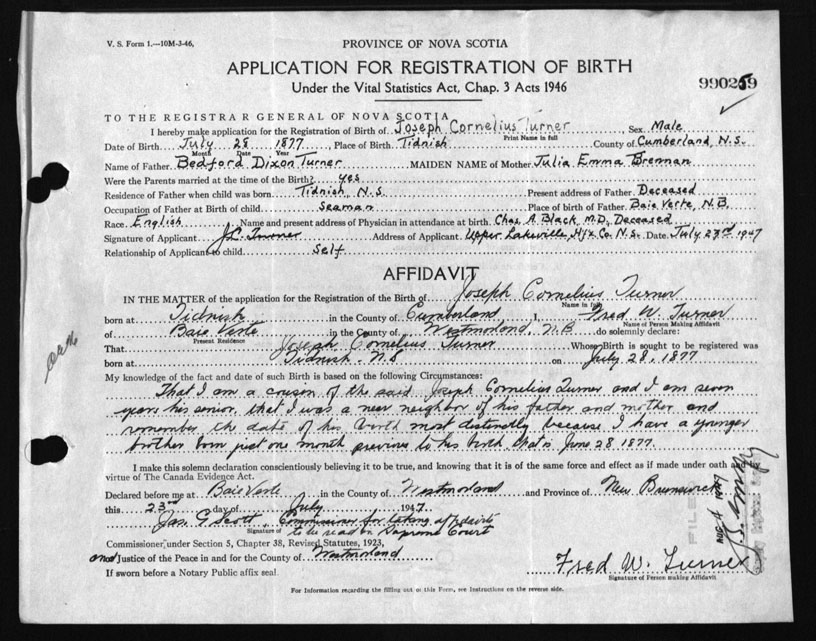 V. S. Form 1.—10M-3-46.
PROVINCE OF NOVA SCOTIA
APPLICATION FOR REGISTRATION OF BIRTH
Under the Vital Statistics Act, Chap. 3 Acts 1946
990259
TO THE REGISTRAR GENERAL OF NOVA SCOTIA
I hereby make application for the Registration of Birth of Joseph Cornelius Turner Sex Male
Print Name in full
Date of Birth July 28 1877 Place of Birth Tidnish County of Cumberland, N.S.
Month Date Year
Name of Father Bedford Dixon Turner MAIDEN NAME of Mother Julia Emma Brennan
Were the Parents married at the time of the Birth? yes
Residence of Father when child was born Tidnish, N.S. Present address of Father Deceased
Occupation of Father at Birth of child seaman Place of birth of Father Baie Verte, N.B.
Race English Name and present address of Physician in attendance at birth Chas A. Black, M.D. Deceased
Signature of Applicant J.C. Turner Address of Applicant Upper Lakeville, Hfx. Co. N.S. Date July 23rd 1947
Relationship of Applicant to child Self
AFFIDAVIT
IN THE MATTER of the application for the Registration of the Birth of Joseph Cornelius Turner
Name in full
born at Tidnish in the County of Cumberland I, Fred W. Turner
Name of Person Making Affidavit
of Baie Verte in the County of Westmorland, N.B. do solemnly declare:
Present Residence
That Joseph Cornelius Turner Whose Birth is sought to be registered was
born at Tidnish N.S on July 28, 1877
My knowledge of the fact and date of such Birth is based on the following Circumstances:
That I am a cousin of the said Joseph Cornelius Turner and I am seven
years his senior, that I was a near neighbor of his father and mother and
remember the date of his birth most distinctly because I have a younger
brother born just one month previous to his birth that is June 28 1877.
I make this solemn declaration conscientiously believing it to be true, and knowing that it is of the same force and effect as if made under oath and by
virtue of The Canada Evidence Act.
Declared before me at Baie Verte in the County of Westmorland and Province of New Brunswick
this 23rd day of July 1947
Jas. G Scott, Commissioner for taking affidavits
Signature of to be read in Supreme Court
Commissioner, under Section 5, Chapter 38, Revised Statutes, 1923,
and Justice of the Peace in and for the County of Westmorland
If sworn before a Notary Public affix seal.
Fred W. Turner
Signature of Person making Affidavit
For Information regarding the filling out of this Form, see Instructions on the reverse side.
FILED
AUG 4 1947